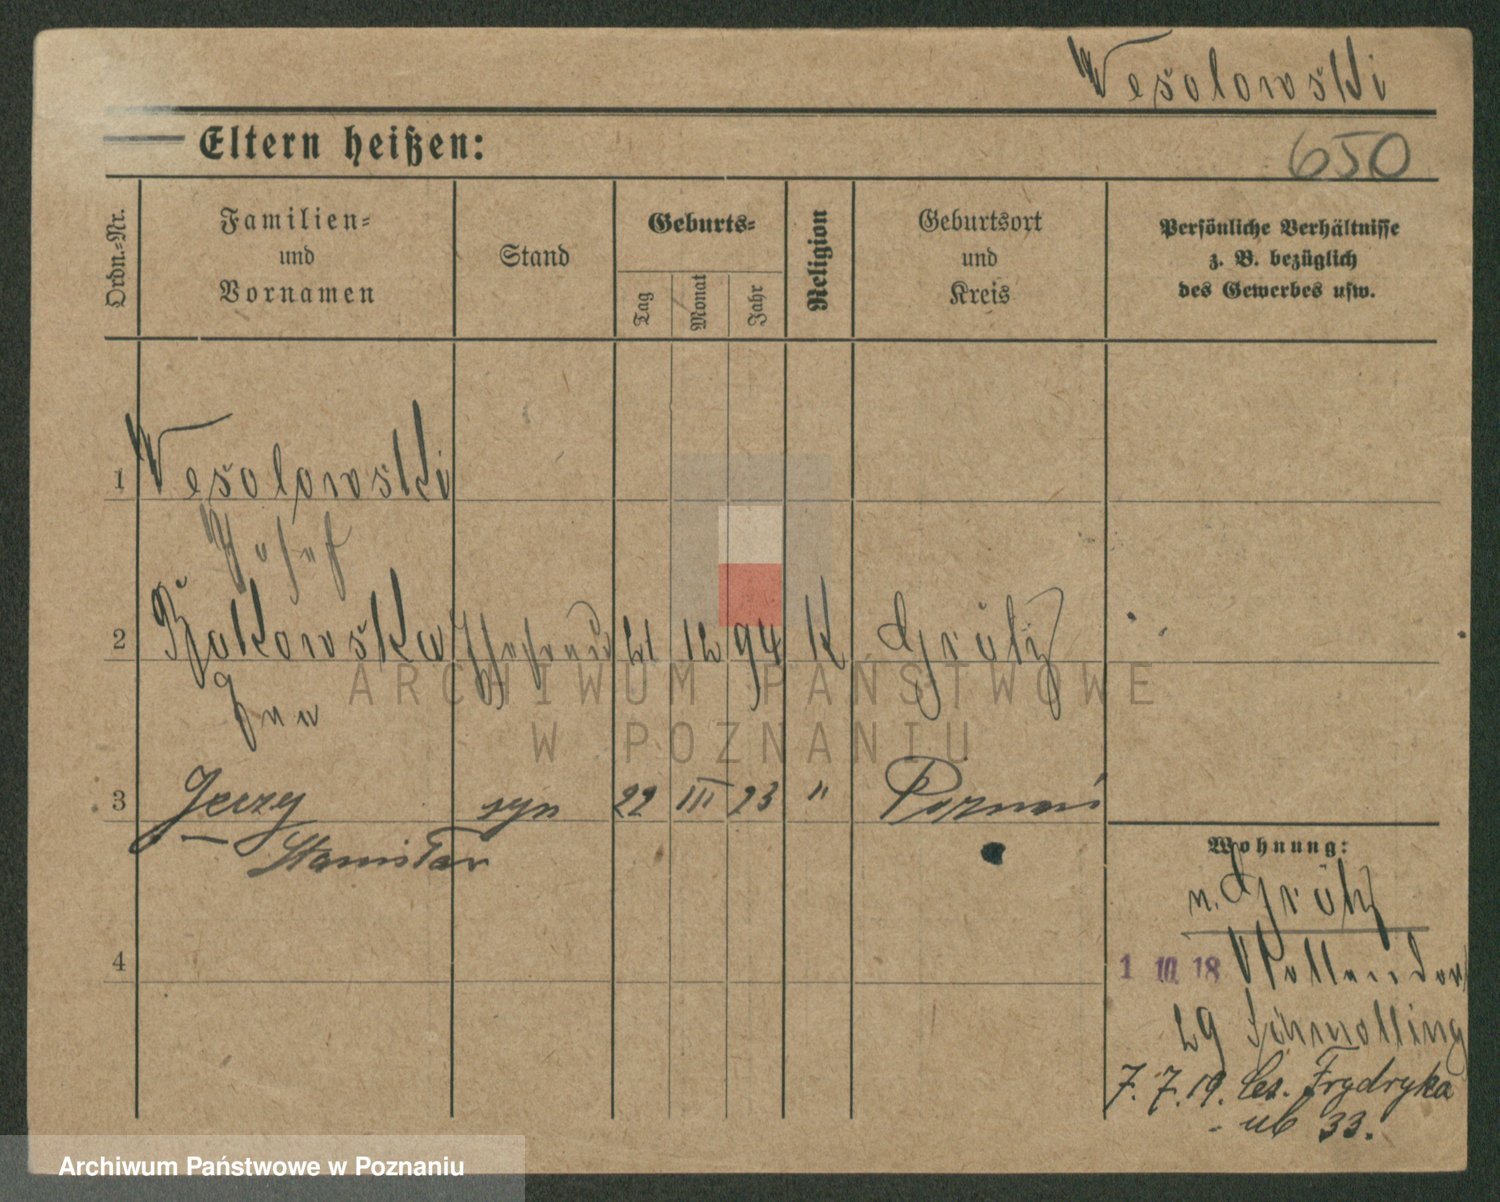 Wesolowski
Eltern heißen:
650
Ordn.-Nr.
Familien-
und
Vornamen
Stand
Geburts-
Tag
Monat
Jahr
Religion
Geburtsort
und
Kreis
Persönliche Verhältnisse
z. B. bezüglich
des Gewerbes usw.
1 Wesolowski
Josef
2 Ehefrau 21 12 94 K Grätz
3 Jerzy syn 22 III 23 " Poznań
Stanisław
4
Wohnung:
n. Grätz
1 10 18
29
7.7.19. Ces. Frydryka
33.
ARCHIWUM PAŃSTWOWE
W POZNANIU
Archiwum Państwowe w Poznaniu